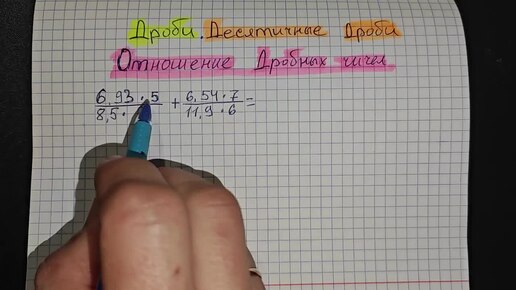 Дроби. Десятичные дроби
Отношение Дробных чисел
6,93 · 5 / 8,5 · + 6,54 · 7 / 11,9 · 6 =